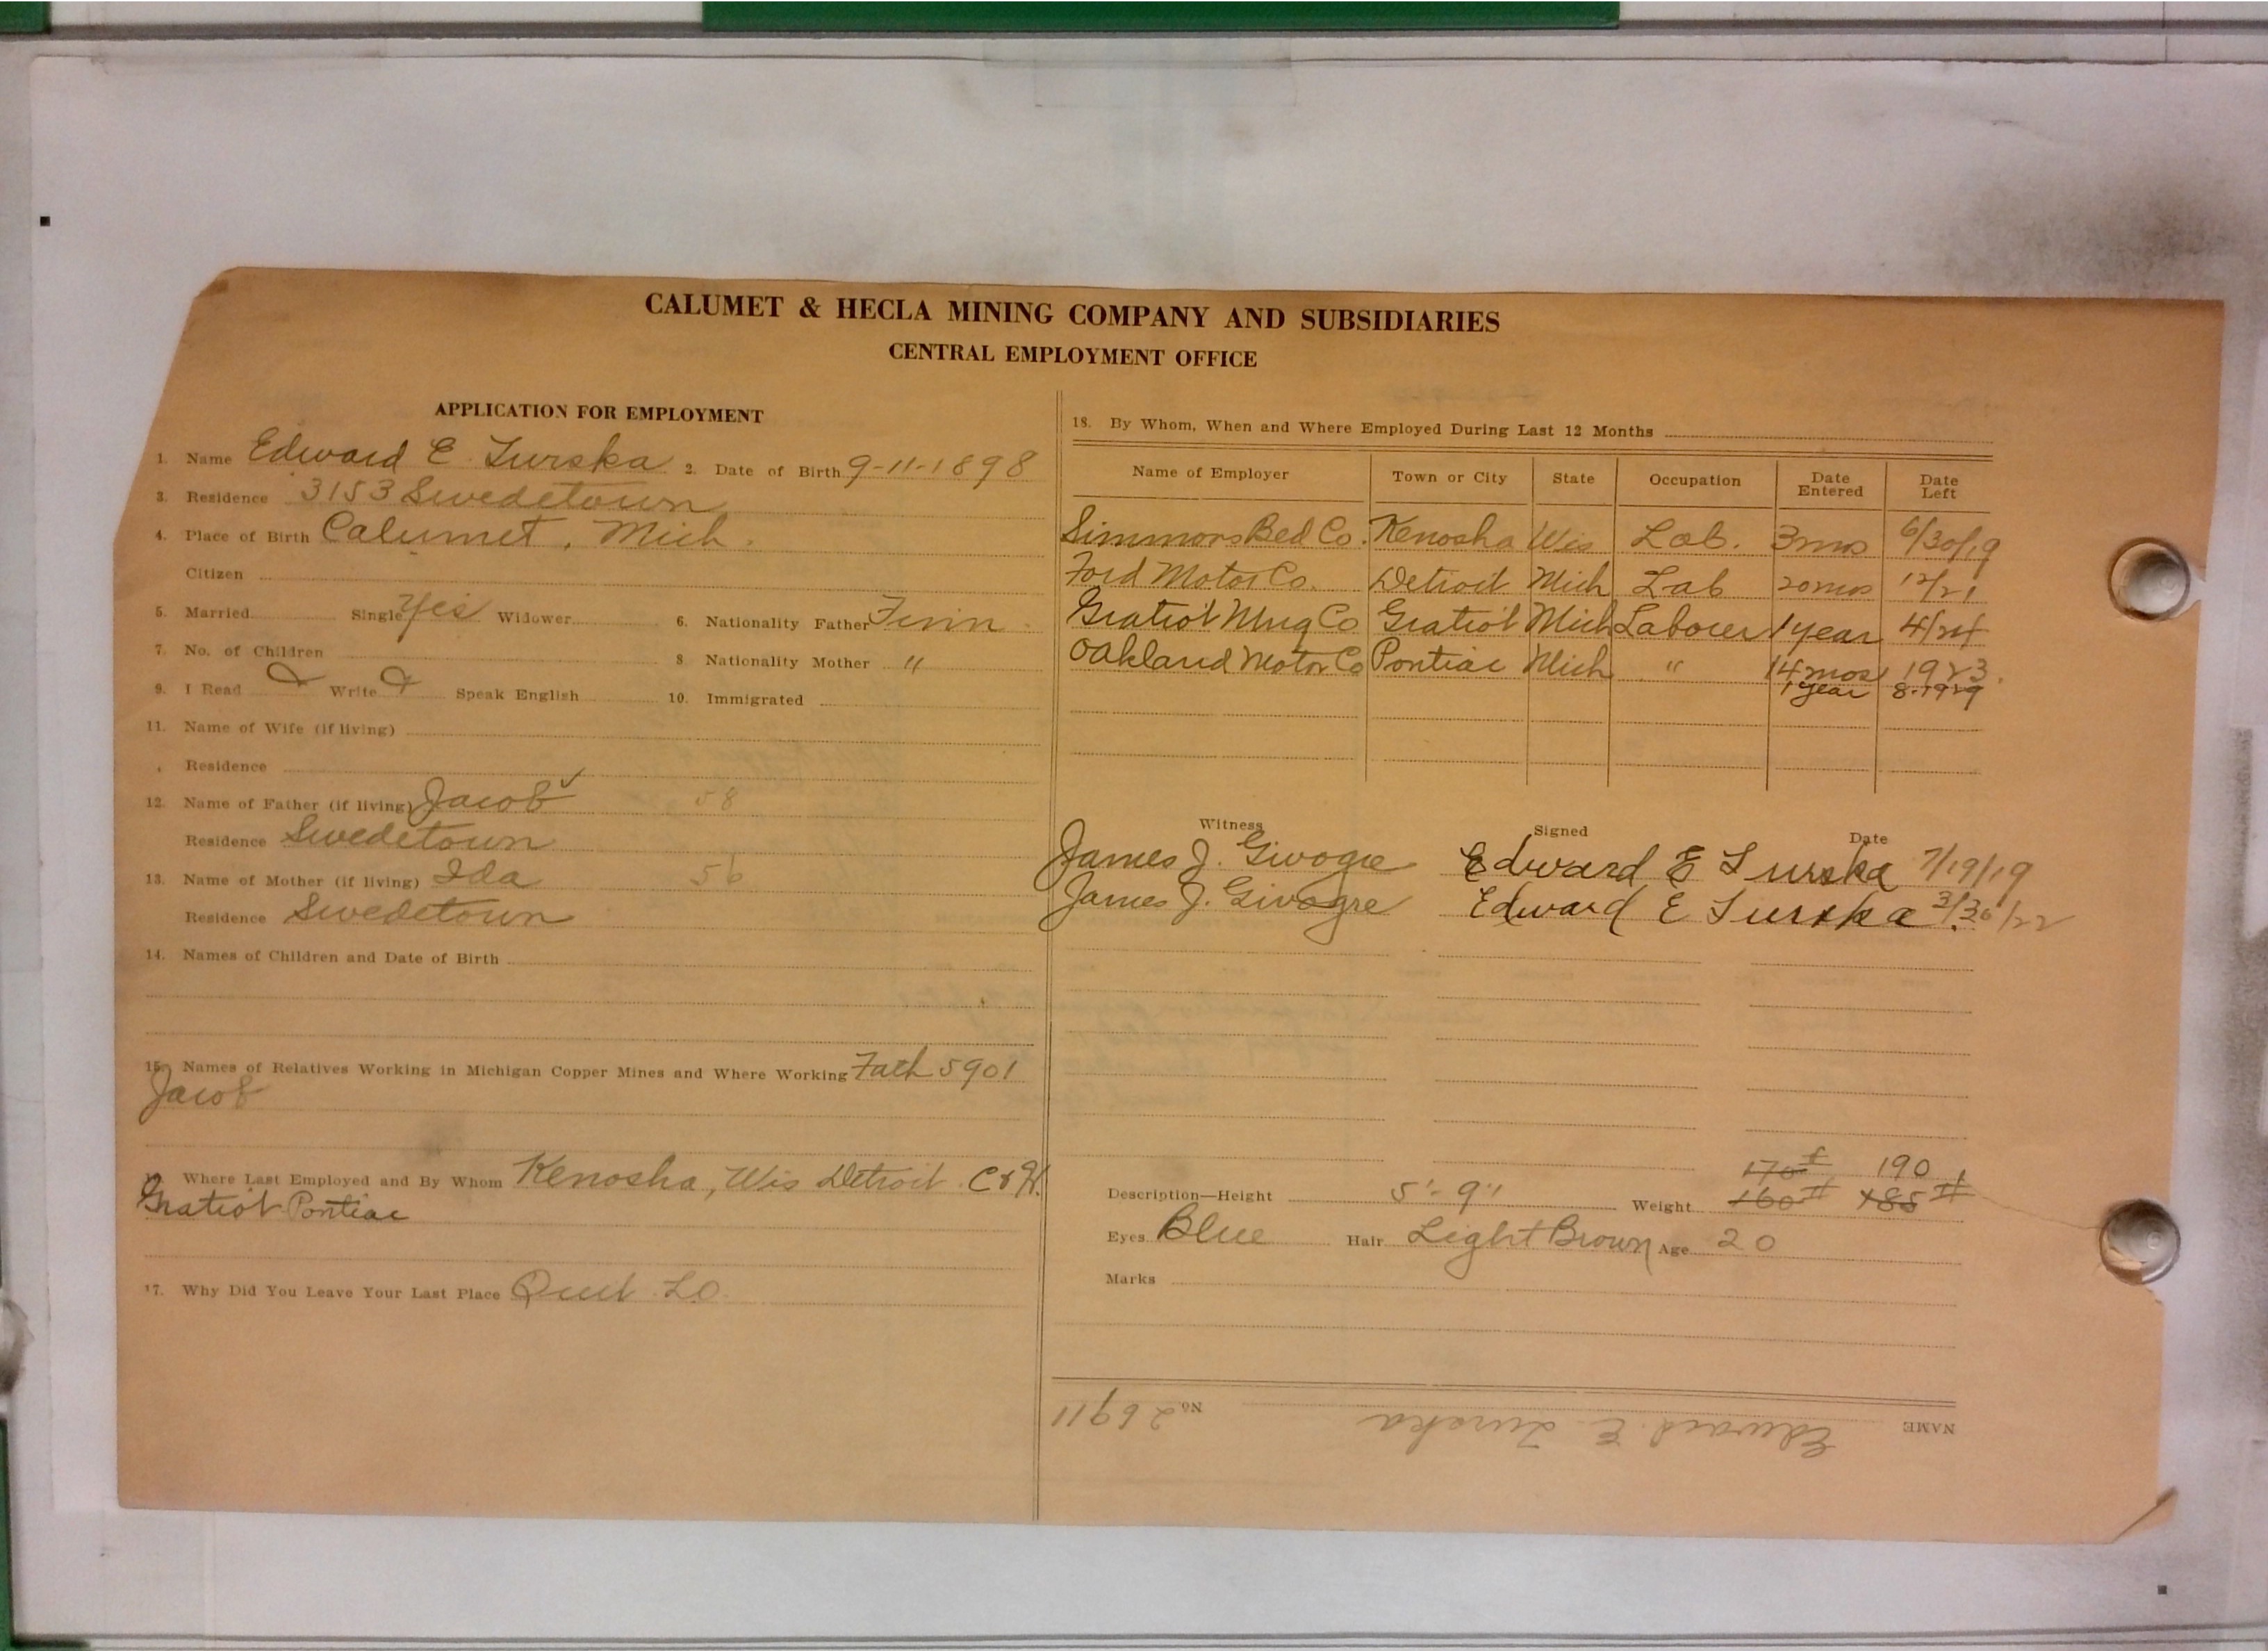 CALUMET & HECLA MINING COMPANY AND SUBSIDIARIES
CENTRAL EMPLOYMENT OFFICE
APPLICATION FOR EMPLOYMENT
1. Name Edward E. Turska 2. Date of Birth 9-11-1898
3. Residence 3153 Swedetown
4. Place of Birth Calumet, Mich.
Citizen
5. Married Single Yes Widower 6. Nationality Father Finn
7. No. of Children 8. Nationality Mother "
9. I Read Write Speak English 10. Immigrated
11. Name of Wife (if living)
Residence
12. Name of Father (if living) Jacob ✓ 58
Residence Swedetown
13. Name of Mother (if living) Ida 56
Residence Swedetown
14. Names of Children and Date of Birth
15. Names of Relatives Working in Michigan Copper Mines and Where Working Fath 5901
Jacob
Where Last Employed and By Whom Kenosha, Wis Detroit. C & H.
Gratiot Pontiac
17. Why Did You Leave Your Last Place Quit LO
18. By Whom, When and Where Employed During Last 12 Months
Name of Employer Town or City State Occupation Date Entered Date Left
Simmons Bed Co. Kenosha Wis Lab. 3 mos 6/30/19
Ford Motor Co. Detroit Mich Lab 20 mos 12/21
Gratiot Mng Co Gratiot Mich Laborer 1 year 4/24
Oakland Motor Co Pontiac Mich " 14 mos 1923.
1 year 8-1929
Witness Signed Date
James J. Givogre Edward E Turska 7/19/19
James J. Givogre Edward E Turska. 3/30/22
170# 190
Description—Height 5'-9" Weight 160# 185#
Eyes Blue Hair Light Brown Age 20
Marks
NAME Edward E. Turska No. 26911